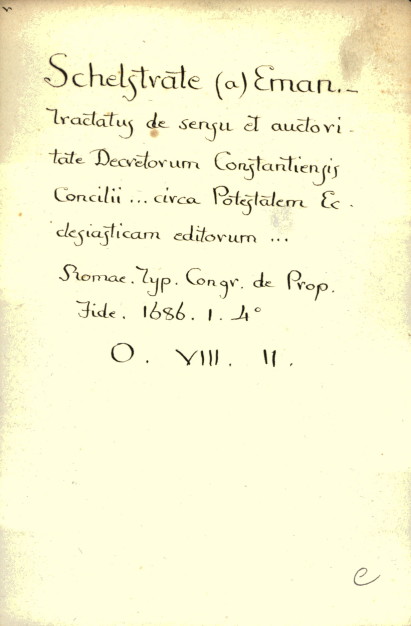 Schelstrate (a) Eman.-
Tractatus de sensu et auctori-
tate Decretorum Constantiensis
Concilii ... circa Potestatem Ec-
clesiasticam editorum ...
Romae. Typ. Congr. de Prop.
Fide. 1686. 1. 4°
O. VIII. 11.
e